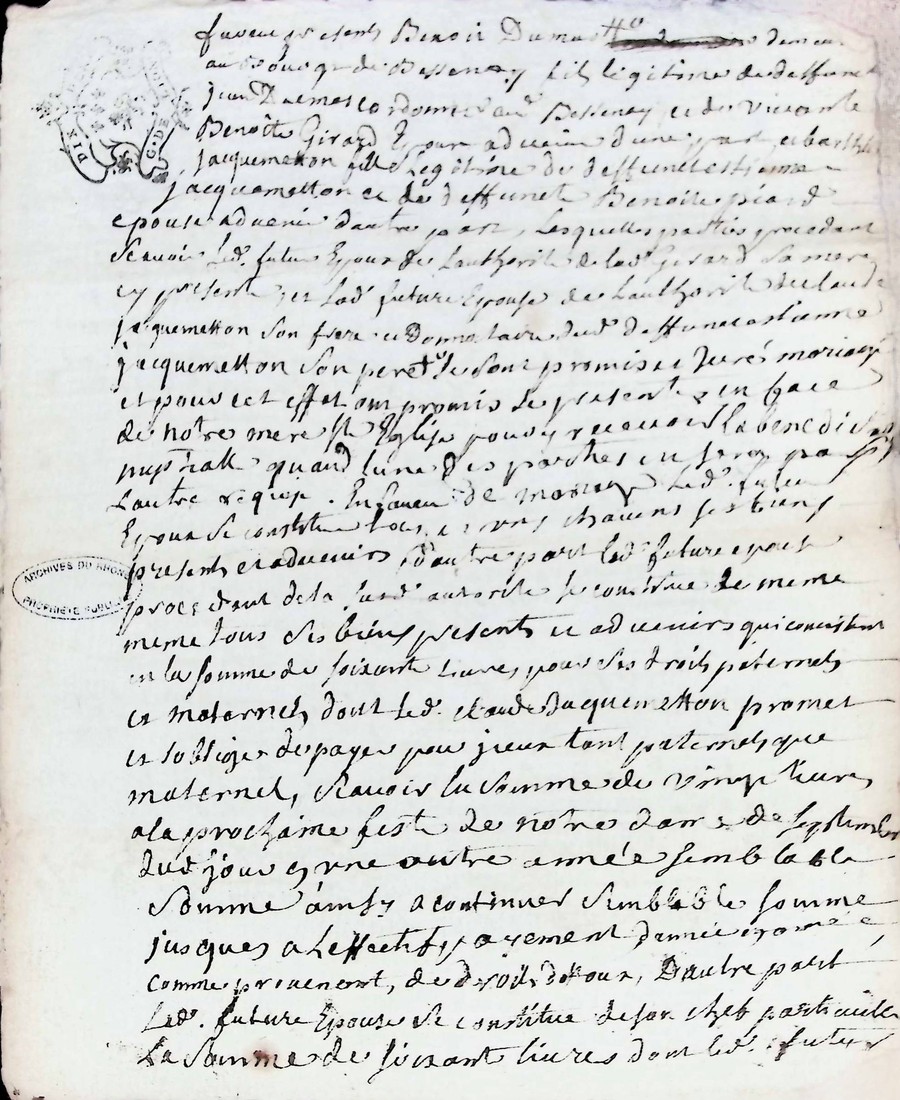 furent presents Benoit Dumas demeu
au Bourcq de Bessenay fils legitime de deffunct
jean Dumas cordonnier aud. Bessenay et de vivante
Benoite Girard Epoux advenir d'une part, et
jacquemetton fille Legitime de deffunct estienne
jacquemetton et de deffuncte Benoite piard
epouse advenir d'autre part, Lesquelles parties procedant
scavoir Led. futur Epoux de Lauthorité de lad. Girard Sa mere
cy presente, et Lad. future Epouse de Lauthorité de claude
jacquemetton son frere et donnataire dud. deffunct estienne
jacquemetton Son pere Se sont promis et jurés mariage
et pour cet effet ont promis Se presenter en face
de notre mere Ste Eglise pour y recevoir la benediction
nuptialle quand lune des parties en sera par
Lautre requise. En faveur de mariage Led. futur
Epoux Se constitue tous et uns chacuns ses biens
presents et advenirs, d'autre part lad. future epouse
procedant de la susd. autorité Se constitue de meme
meme tous ses biens presents et advenirs qui consistent
en la somme de soixante Livres pour ses droits paternels
et maternels dont Led. claude Jacquemetton promet
et soblige de payer pour jceux tant paternels que
maternels, scavoir la somme de vingt livres
a la prochaine feste de notre dame de septembre
dud. jour en une autre année semblable
somme ainsy a continuer semblable somme
jusques a Leffectif payement d'année a année
comme provenant, de droits dottaux, D'autre part
Lad. future Epouse Se constitue de son chef particulier
La Somme de soixante livres dont led. futur
ARCHIVES DU RHONE
PROPRIETE PUBLIQUE
DIX
G. DE